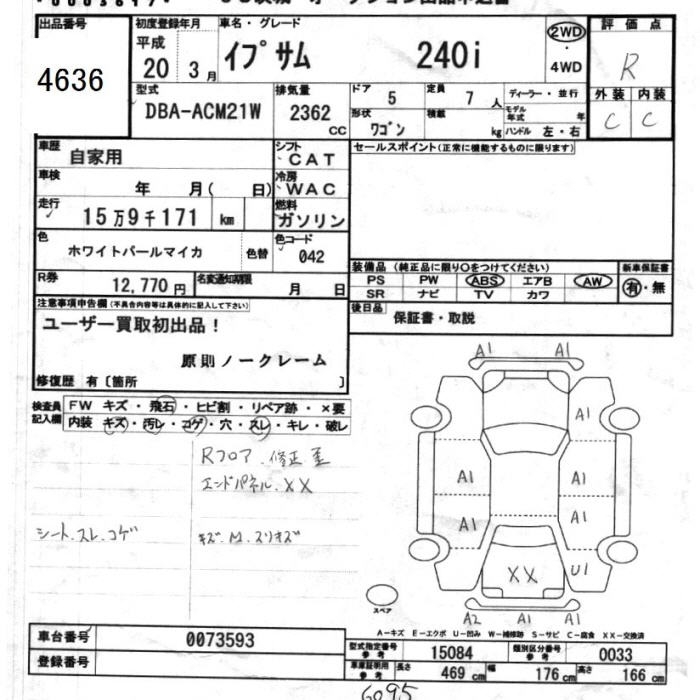 出品番号 初度登録年月 車名・グレード 評価点
4636 平成 20 3月 イプサム 240i 2WD 4WD R
型式 排気量 ドア 5 定員 7人 ディーラー・並行 外装 内装
DBA-ACM21W 2362 CC 形状 ワゴン 積載 kg モデル年式 年 ハンドル 左・右 C C
車歴 自家用 シフト CAT セールスポイント(正常に機能するものに限ります)
車検 年 月( 日) 冷房 WAC
走行 15万9千171 km 燃料 ガソリン
色 ホワイトパールマイカ 色替 色コード 042
装備品 (純正品に限り○をつけてください) 新車保証書
PS PW ABS エアB AW 有・無
SR ナビ TV カワ
R券 12,770円 名変通知期限 月 日
後日品 保証書・取説
注意事項申告欄(不具合内容等は具体的に記入して下さい)
ユーザー買取初出品!
原則ノークレーム
修復歴 有〔箇所 〕
検査員記入欄 FW キズ・飛石・ヒビ割・リペア跡・×要
内装 キズ・汚レ・コゲ・穴・スレ・キレ・破レ
Rフロア.修正歪
エンドパネル.XX
シート.スレ.コゲ
A1 A1
A1
A1 A1
A1 A1
XX U1
スペア
A2 A1 A1
A-キズ E-エクボ U-凹み W-補修跡 S-サビ C-腐食 XX-交換済
車台番号 0073593
登録番号
型式指定番号 参考 15084 類別区分番号 参考 0033
車庫証明用 参考 長さ 469 cm 幅 176 cm 高さ 166 cm
6095